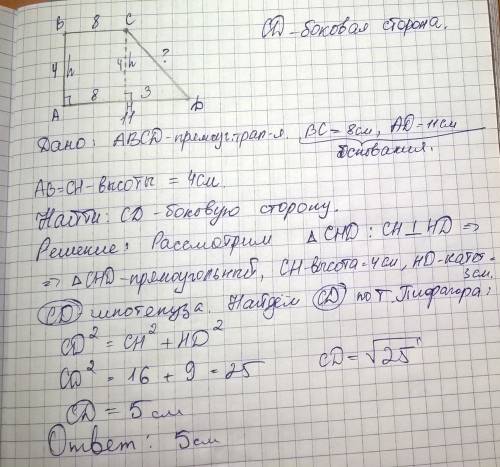 B 8 C
CD - боковая сторона.
4 h 4 h ?
A 8 H 3 D
11
Дано: ABCD - прямоуг. трап-я. BC = 8см, AD = 11см
основания.
AB = CH - высоты = 4см.
Найти: CD - боковую сторону.
Решение: Рассмотрим △CHD: CH ⊥ HD ⇒
⇒ △CHD - прямоугольный, CH - высота = 4см, HD - катет =
3см.
CD гипотенуза. Найдём CD по т. Пифагора:
CD² = CH² + HD²
CD² = 16 + 9 = 25 CD = √25
CD = 5см
Ответ: 5см